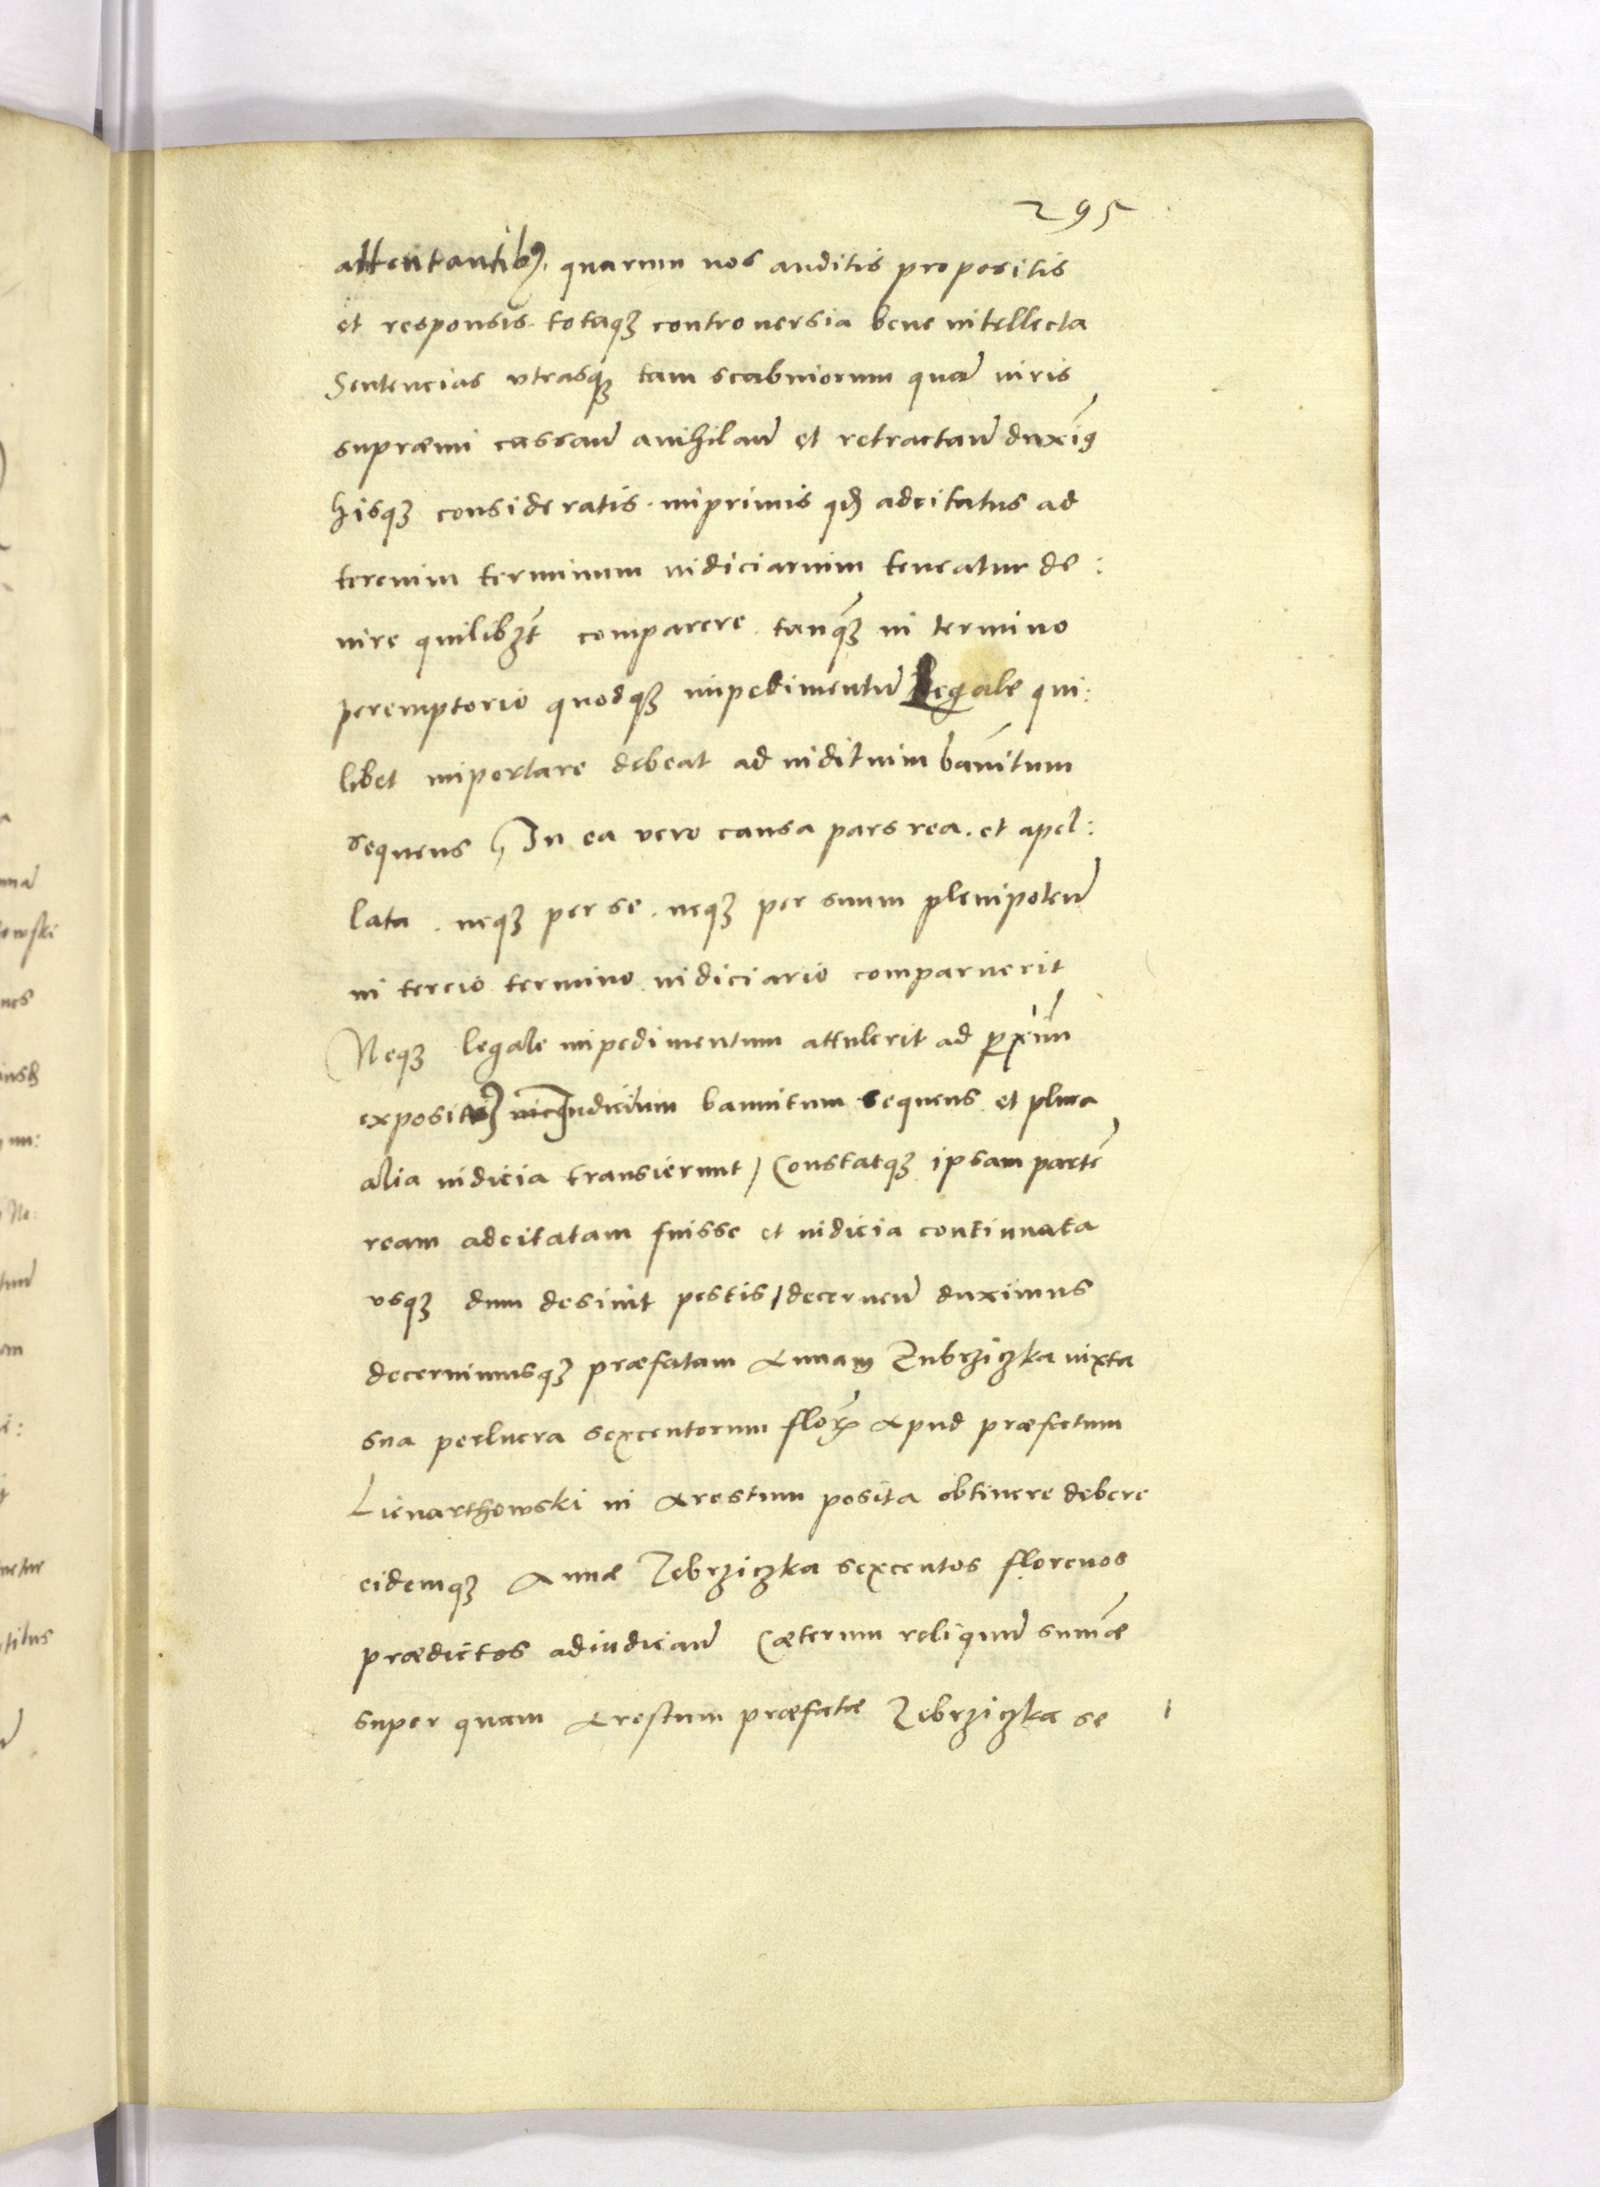 295
attentantib9. quarum nos auditis propositis
et responsis. totaqꝫ controuersia bene intellecta
Sentencias vtrasqꝫ tam scabniorum quā iuris
supræmi cassan̄ anihilan̄ et retractan̄ duxim9
hisqꝫ consideratis. inprimis qd adcitatus ad
tercium terminum iudiciarium teneatur de:
nire quilibꝫt comparere. tanqꝫ in termino
peremptorio quodqꝫ impedimentū Legale qui:
libet importare debeat ad iudituim banītum
sequens In ea vero causa pars rea. et apel:
lata. neqꝫ per se. neqꝫ per suum plenipoten̄
in tercio termino iudiciario comparuerit
Neqꝫ legale impedimentum attulerit ad prximū
iudicium bannitum sequens et plura
alia iudicia transierunt / Constatqꝫ ipsam partē
ream adcitatam fuisse et iudicia continuata
vsqꝫ dum desinit pestis / decernen̄ duximus
decernimusqꝫ præfatam Annam Zubrziczka iuxta
sua perlucra sexcentorum flor Apud præfatum
Lienarthowski in Arestum posita obtinere debere
eidemqꝫ Annæ Zebrziczka sexcentos florenos
prædictos adiudican̄ Cæterum reliquum sum̄æ
super quam Arestum præfatæ Zebrziczka se